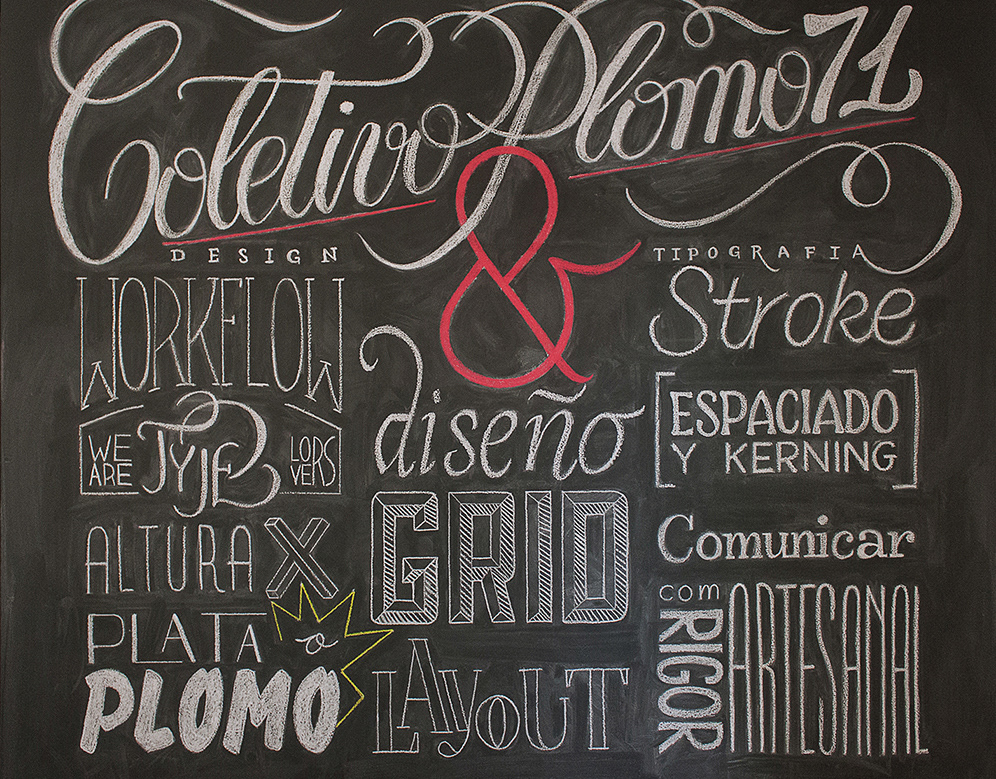 Coletivo Plomo71
DESIGN
&
TIPOGRAFIA
WORKFLOW
WE ARE TYPE LOVERS
ALTURA X
PLATA o
PLOMO
diseño
GRID
LAYOUT
Stroke
[ESPACIADO
Y KERNING]
Comunicar
com
RIGOR
ARTESANAL